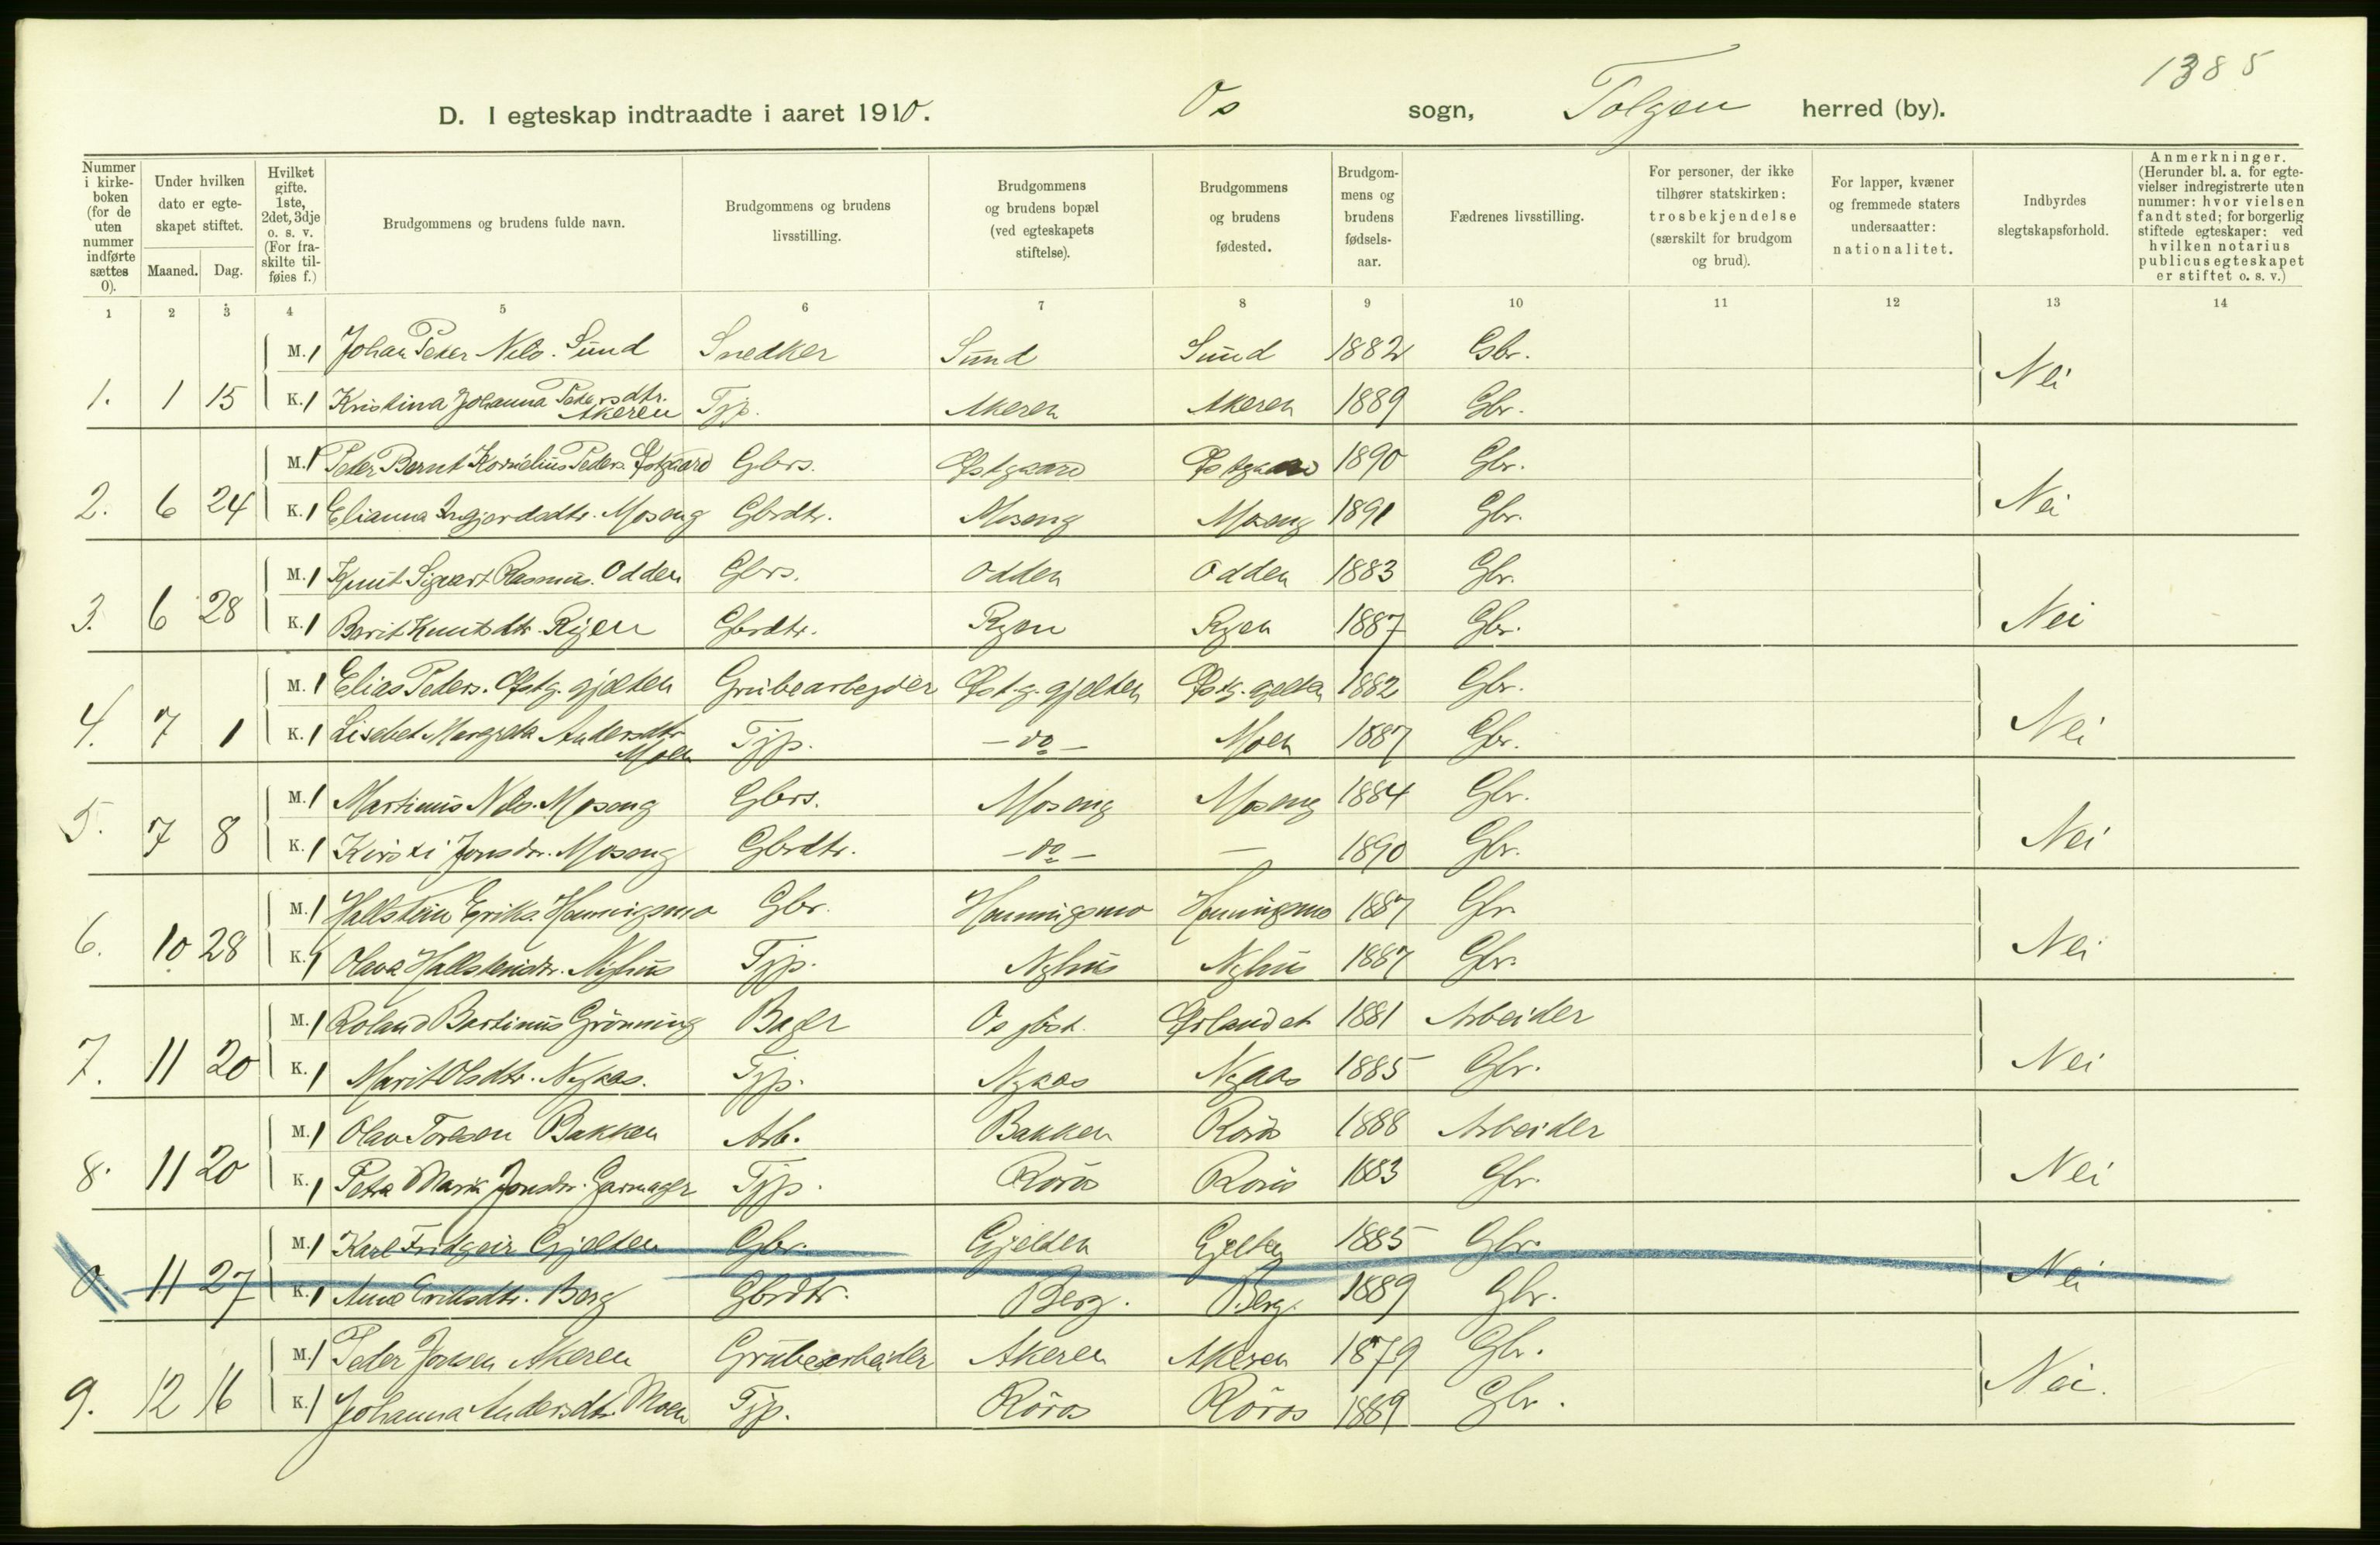 1385
D. I egteskap indtraadte i aaret 1910. Os sogn, Tolgen herred (by).
Nummer i kirkeboken (for de uten nummer indførte sættes 0).
Under hvilken dato er egteskapet stiftet.
Maaned. Dag.
Hvilket gifte. 1ste, 2det, 3dje o. s. v. (For fraskilte tilføies f.)
Brudgommens og brudens fulde navn.
Brudgommens og brudens livsstilling.
Brudgommens og brudens bopæl (ved egteskapets stiftelse).
Brudgommens og brudens fødested.
Brudgommens og brudens fødselsaar.
Fædrenes livsstilling.
For personer, der ikke tilhører statskirken: trosbekjendelse (særskilt for brudgom og brud).
For lapper, kvæner og fremmede staters undersaatter: nationalitet.
Indbyrdes slegtskapsforhold.
Anmerkninger. (Herunder bl. a. for egtevielser indregistrerte uten nummer: hvor vielsen fandt sted; for borgerlig stiftede egteskaper: ved hvilken notarius publicus egteskapet er stiftet o. s. v.)
1 2 3 4 5 6 7 8 9 10 11 12 13 14
M. 1 Johan Peder Nils. Sund Snedker Sund Sund 1882 Gbr.
1. 1 15 K. 1 Kristina Johanna Pedersdtr. Akeren Tjp. Akeren Akeren 1889 Gbr. Nei
M. 1 Peder Bernt Kornelius Peders. Østgaard Gbrs. Østgaard Østgaard 1890 Gbr.
2. 6 24 K. 1 Elianna Ingjerdsdtr. Moseng Gbrdtr. Moseng Moseng 1891 Gbr. Nei
M. 1 Knut Sigvart Rasmus. Odden Gbrs. Odden Odden 1883 Gbr.
3. 6 28 K. 1 Berit Knutsdtr. Ryen Gbrdtr. Ryen Ryen 1887 Gbr. Nei
M. 1 Elias Peders. Østg. gjelten Grubearbeyder Øst.g. gjelten Østg. gjelten 1882 Gbr.
4. 7 1 K. 1 Lisebet Margreta Andersdtr. Moen Tjp. - do - Moen 1887 Gbr. Nei
M. 1 Martinus Nils. Moseng Gbrs. Moseng Moseng 1884 Gbr.
5. 7 8 K. 1 Kirsti Jonsdtr. Moseng Gbrdtr. - do - — 1890 Gbr. Nei
M. 1 Hallstein Eriks. Henningsmo Gbr. Henningsmo Henningsmo 1887 Gbr.
6. 10 28 K. 1 Olava Hallsteinsdtr. Nyhus Tjp. Nyhus Nyhus 1887 Gbr. Nei
M. 1 Roland Bartinus Grönning Bager Os Ørlandet 1881 Arbeider
7. 11 20 K. 1 Marit Olsdtr. Nyaas. Tjp. Nyaas Nyaas 1885 Gbr. Nei
M. 1 Olav Toresen Bakken Arb. Bakken Röros 1888 Arbeider
8. 11 20 K. 1 Petra Maria Jonsdtr. Garmager Tjp. Röros Röros 1883 Gbr. Nei
M. 1 Karl Fridgeir Gjelten Gbr. Gjelten Gjelten 1885 Gbr.
0. 11 27 K. 1 Anne Eriksdtr. Berg Gbrdtr. Berg. Berg. 1889 Gbr. Nei
M. 1 Peder Jonsen Akeren Grubearbeider Akeren Akeren 1879 Gbr.
9. 12 16 K. 1 Johanna Andersdtr. Moen Tjp. Röros Röros 1889 Gbr. Nei.